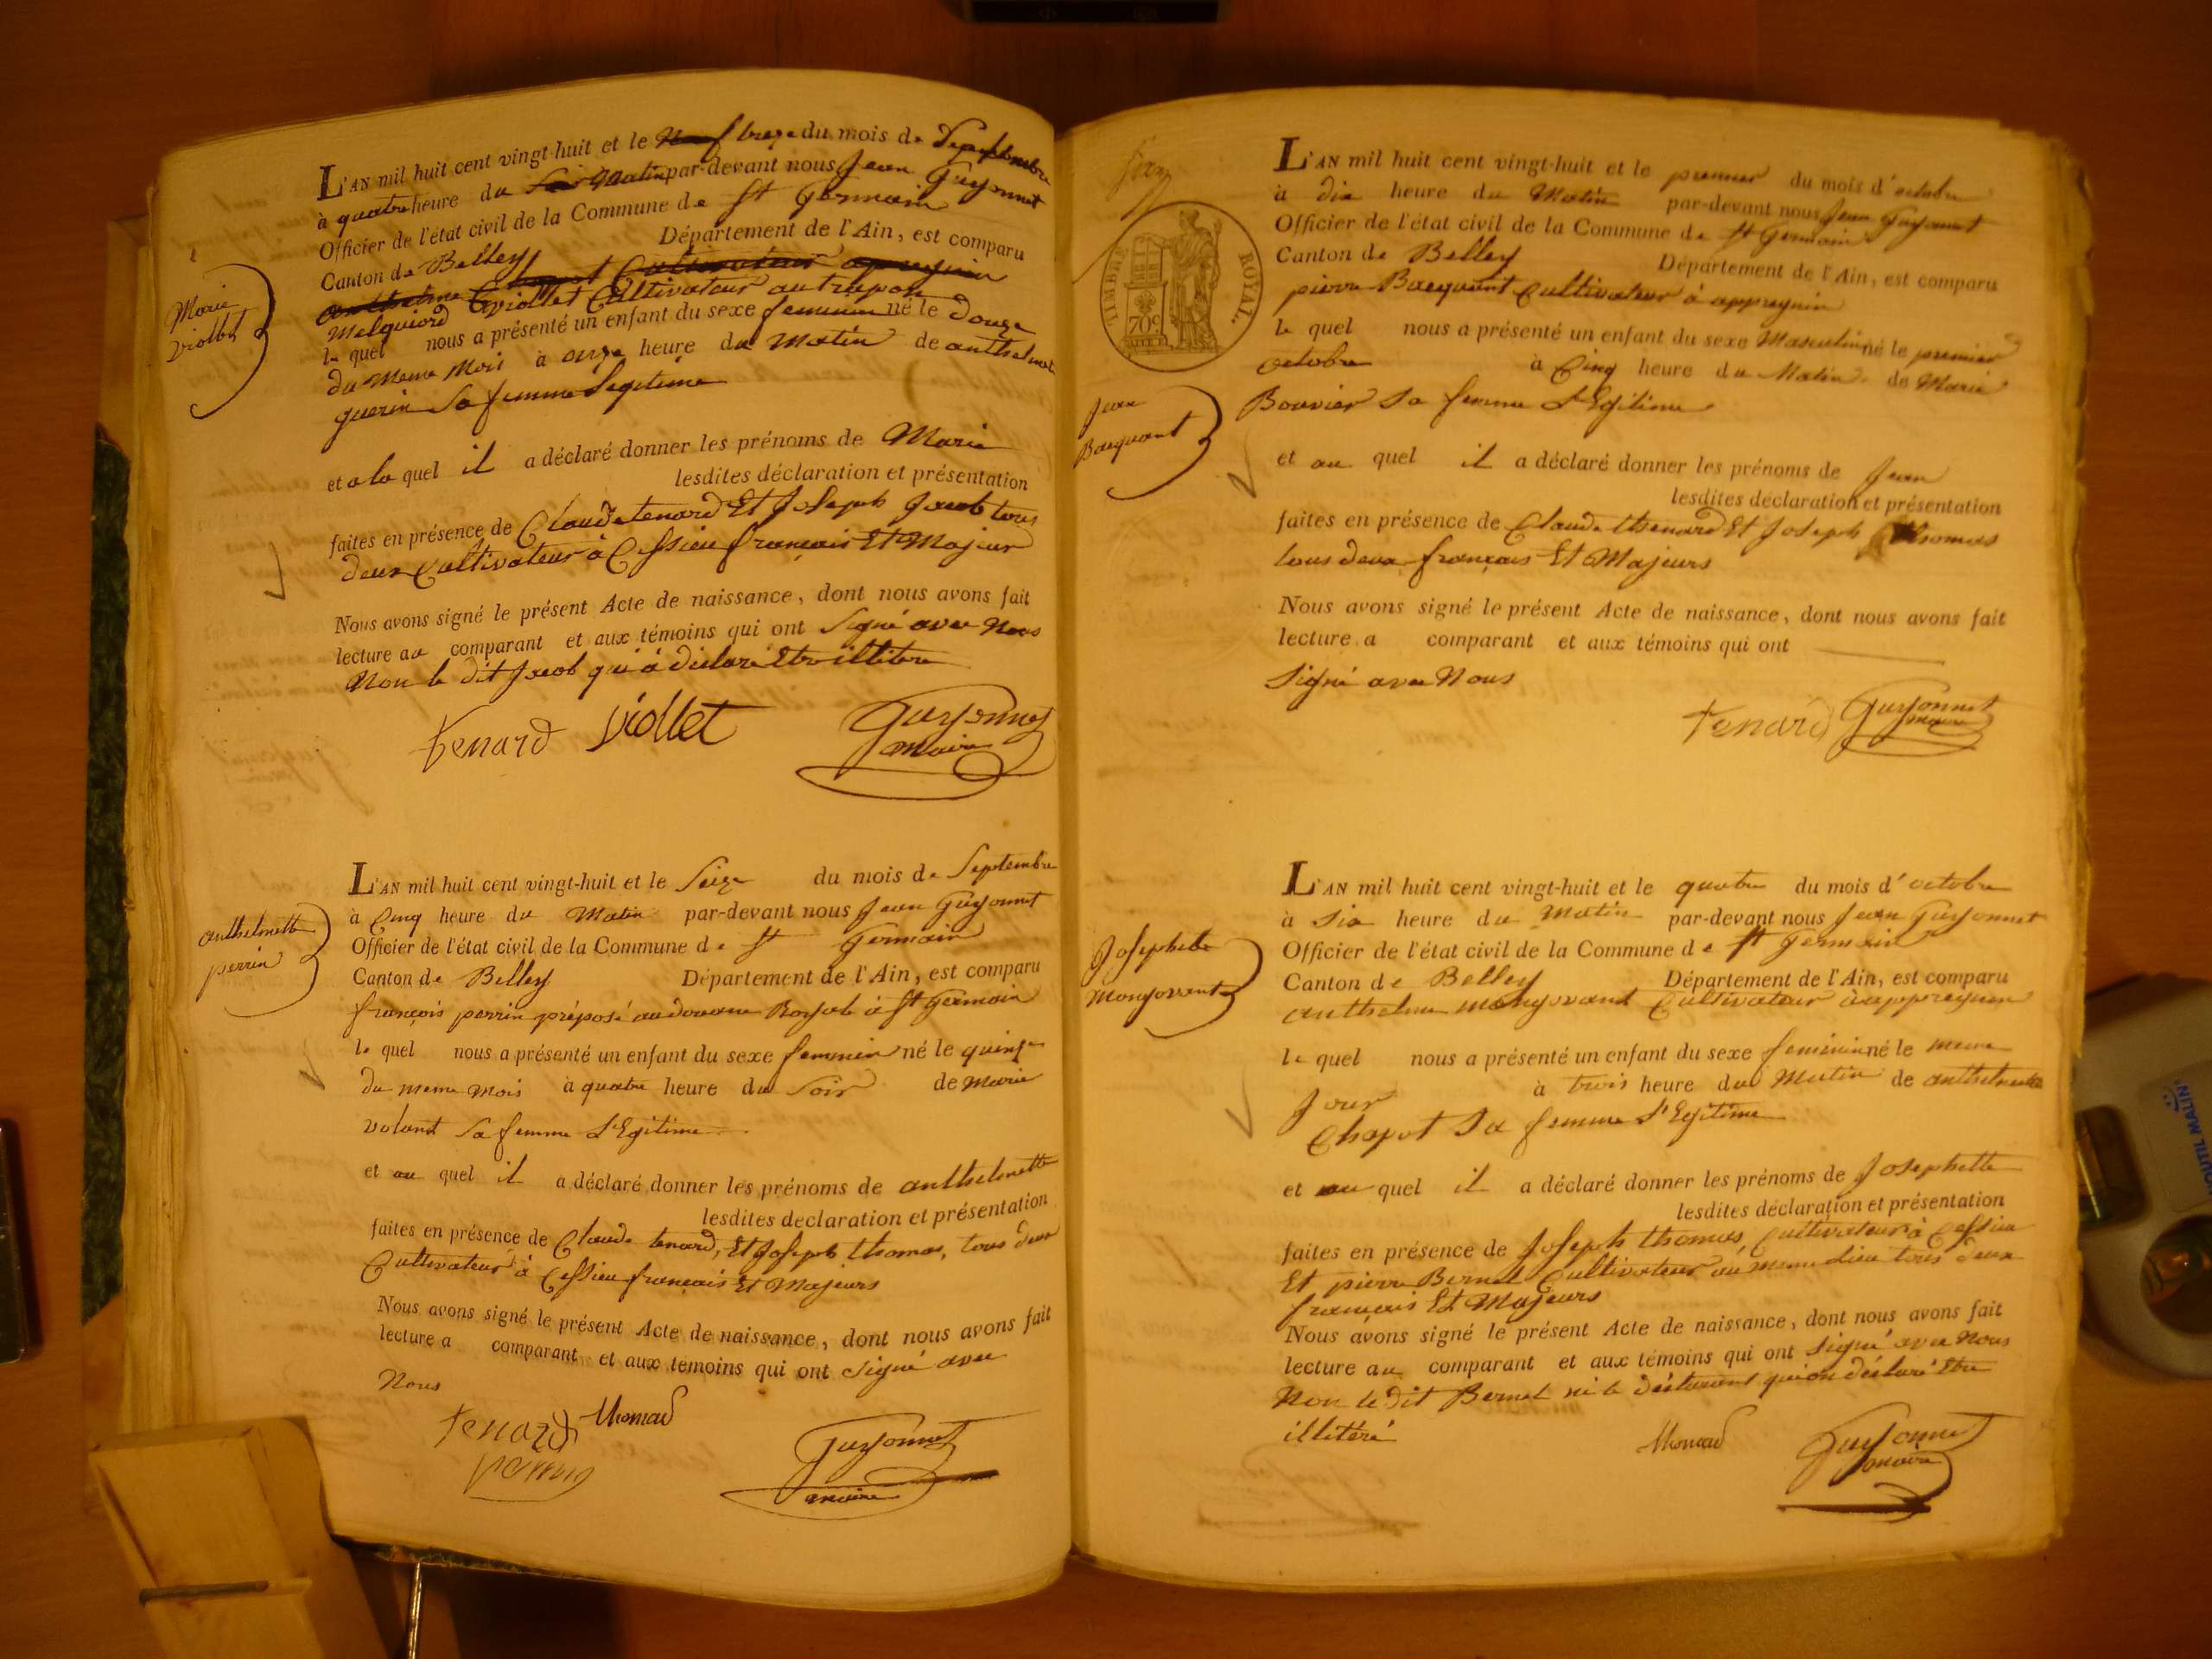 Marie
Viollet
L'AN mil huit cent vingt-huit et le Neuf treze du mois de Septembre
à quatre heure du Soir Matin par-devant nous Jean Guyonnet
Officier de l'état civil de la Commune de St Germain
Canton de Belley Département de l'Ain, est comparu
anthelme Chapot Cultivateur apregnin
Melquiord Viollet Cultivateur au trapon
le quel nous a présenté un enfant du sexe feminin né le Douze
du Meme Mois à onze heure du Matin de anthelmet
guerin Sa femme Legitime
et a la quel il a déclaré donner les prénoms de Marie
lesdites déclaration et présentation
faites en présence de Claude tenard Et Joseph Jacob tous
deux Cultivateur à Cessieu français Et Majeur
Nous avons signé le présent Acte de naissance, dont nous avons fait
lecture au comparant et aux témoins qui ont Signé avec Nous
Non le dit Jacob qui à déclaré Etre illitere
tenard Viollet Guyonnet
Maire
anthelmette
perrin
L'AN mil huit cent vingt-huit et le Seize du mois de Septembre
à Cinq heure du Matin par-devant nous Jean Guyonnet
Officier de l'état civil de la Commune de St Germain
Canton de Belley Département de l'Ain, est comparu
françois perrin préposé au douane Royale à St Germain
le quel nous a présenté un enfant du sexe feminin né le quinze
du meme mois à quatre heure du Soir de Marie
volant Sa femme L'Egitime
et au quel il a déclaré donner les prénoms de anthelmette
lesdites declaration et présentation
faites en présence de Claude tenard, Et Joseph thomas, tous deux
Cultivateur à Cessieu français Et Majeurs
Nous avons signé le présent Acte de naissance, dont nous avons fait
lecture a comparant et aux temoins qui ont Signé avec
Nous
tenard thomas
perrin Guyonnet
maire
TIMBRE ROYAL.
70c
Jean
Bacquant
L'AN mil huit cent vingt-huit et le premier du mois d'octobre
à dix heure du Matin par-devant nous Jean Guyonnet
Officier de l'état civil de la Commune de St Germain
Canton de Belley Département de l'Ain, est comparu
pierre Bacquant Cultivateur à appregnin
le quel nous a présenté un enfant du sexe Masculin né le premier
octobre à Cinq heure du Matin de Marie
Bouvier Sa femme L'Egitime
et au quel il a déclaré donner les prénoms de Jean
lesdites déclaration et présentation
faites en présence de Claude thenard Et Joseph thomas
tous deux français Et Majeurs
Nous avons signé le présent Acte de naissance, dont nous avons fait
lecture a comparant et aux témoins qui ont
Signé avec Nous
tenard Guyonnet
maire
Josephette
Mongovent
L'AN mil huit cent vingt-huit et le quatre du mois d'octobre
à Six heure du Matin par-devant nous Jean Guyonnet
Officier de l'état civil de la Commune de St Germain
Canton de Belley Département de l'Ain, est comparu
anthelme mongovant Cultivateur à appregnin
le quel nous a présenté un enfant du sexe feminin né le meme
Jour à trois heure du Matin de anthelmette
Chapot Sa femme L'Egitime
et au quel il a déclaré donner les prénoms de Josephette
lesdites déclaration et présentation
faites en présence de Joseph thomas Cultivateur à Cessieu
Et pierre Bernet Cultivateur au meme lieu tous deux
français Et Majeurs
Nous avons signé le présent Acte de naissance, dont nous avons fait
lecture au comparant et aux témoins qui ont Signé avec Nous
Non le dit Bernet ni le déclarant qui on déclaré Etre
illitéré
thomas Guyonnet
maire
OUTIL MALIN